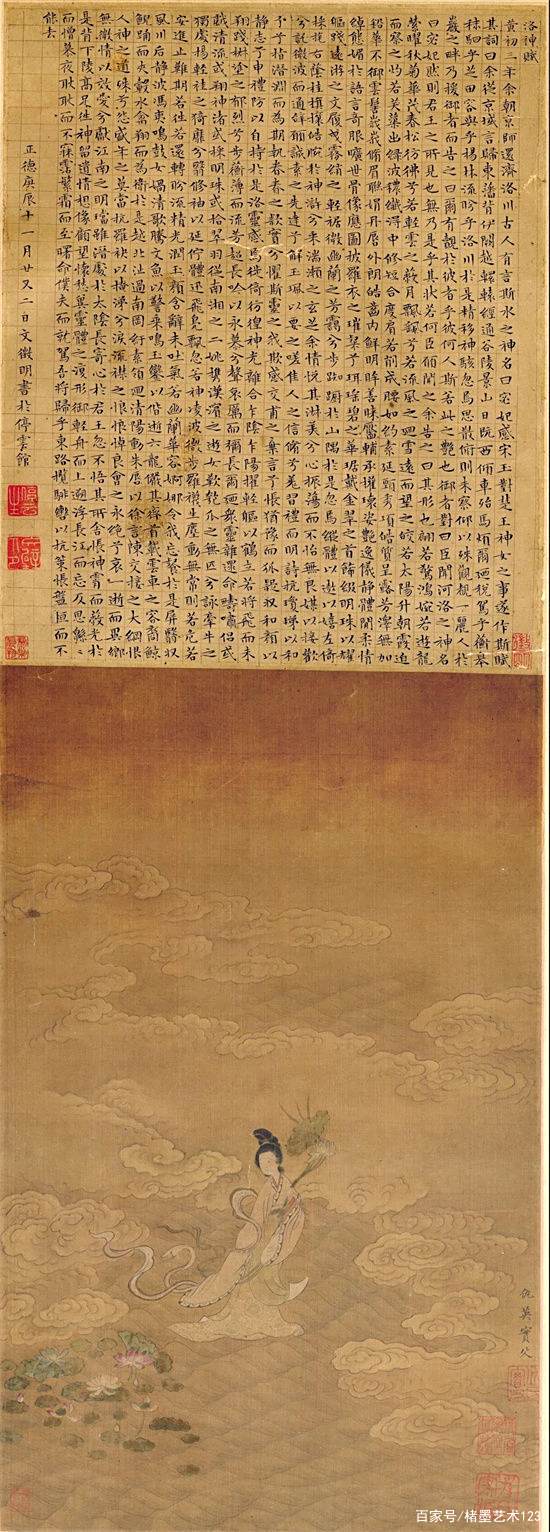 洛神賦
黃初三年余朝京師還濟洛川古人有言斯水之神名曰宓妃感宋玉對楚王神女之事遂作斯賦
其詞曰余從京域言歸東藩背伊闕越轘轅經通谷陵景山日既西傾車殆馬煩爾迺稅駕乎蘅皋
秣駟乎芝田容與乎楊林流眄乎洛川於是精移神駭忽焉思散俯則未察仰以殊觀覩一麗人於
巖之畔乃援御者而告之曰爾有覿於彼者乎彼何人斯若此之艷也御者對曰臣聞河洛之神名
曰宓妃然則君王之所見也無乃是乎其狀若何臣願聞之余告之曰其形也翩若驚鴻婉若遊龍
榮曜秋菊華茂春松彷彿兮若輕雲之蔽月飄颻兮若流風之迴雪遠而望之皎若太陽升朝霞迫
而察之灼若芙蕖出淥波穠纖得中修短合度肩若削成腰如約素延頸秀項皓質呈露芳澤無加
鉛華不御雲髻峩峩脩眉聯娟丹唇外朗皓齒內鮮明眸善睞靨輔承權瓌姿艷逸儀靜體閑柔情
綽態媚於語言奇服曠世骨像應圖披羅衣之璀粲兮珥瑤碧之華琚戴金翠之首飾綴明珠以耀
軀踐遠遊之文履曳霧綃之輕裾微幽蘭之芳藹兮步踟躕於山隅於是忽焉縱體以遨以嬉左倚
採旄右蔭桂旗攘皓腕於神滸兮采湍瀨之玄芝余情悅其淑美兮心振蕩而不怡無良媒以接歡
兮託微波而通辭願誠素之先達兮解玉珮以要之嗟佳人之信脩兮羌習禮而明詩抗瓊珶以和
予兮指潛淵而為期執眷眷之款實兮懼斯靈之我欺感交甫之棄言兮悵猶豫而狐疑收和顏以
靜志兮申禮防以自持於是洛靈感焉徙倚彷徨神光離合乍陰乍陽擢輕軀以鶴立若將飛而未
翔踐椒塗之郁烈兮步蘅薄而流芳超長吟以永慕兮聲哀厲而彌長爾迺眾靈雜遝命疇嘯侶或
戲清流或翔神渚或採明珠或拾翠羽從南湘之二妃攜漢濱之遊女歎匏瓜之無匹兮詠牽牛之
獨處揚輕袿之猗靡兮翳修袖以延佇體迅飛鳧飄忽若神凌波微步羅襪生塵動無常則若危若
安進止難期若往若還轉眄流精光潤玉顏含辭未吐氣若幽蘭華容婀娜令我忘飡於是屏翳收
風川后靜波馮夷鳴鼓女媧清歌騰文魚以警乘鳴玉鑾以偕逝六龍儼其齊首載雲車之容裔鯨
鯢踊而夾轂水禽翔而為衛於是越北沚過南岡紆素領迴清陽動朱唇以徐言陳交接之大綱恨
人神之道殊兮怨盛年之莫當抗羅袂以掩涕兮淚流襟之浪浪悼良會之永絕兮哀一逝而異鄉
無微情以效愛兮獻江南之明璫雖潛處於太陰長寄心於君王忽不悟其所舍悵神霄而蔽光於
是背下陵高足往神留遺情想像顧望懷愁冀靈體之復形御輕舟而上遡浮長江而忘反思綿綿
而增慕夜耿耿而不寐霑繁霜而至曙命僕夫而就駕吾將歸乎東路攬騑轡以抗策悵盤桓而不
能去
正德庚辰十一月廿又二日文徵明書於停雲館
仇英實父
百家号/楮墨艺术123